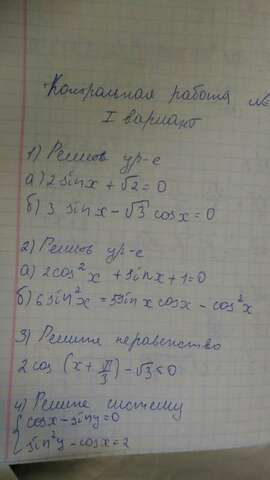 Контрольная работа №
I вариант
1) Решить ур-е
а) 2 sin x + √2 = 0
б) 3 sin x - √3 cos x = 0
2) Решить ур-е
а) 2 cos² x + sin x + 1 = 0
б) 6 sin² x = 5 sin x cos x - cos² x
3) Решите неравенство
2 cos (x + π/3) - √3 ≤ 0
4) Решите систему
{ cos x - sin y = 0
sin² y - cos x = 2